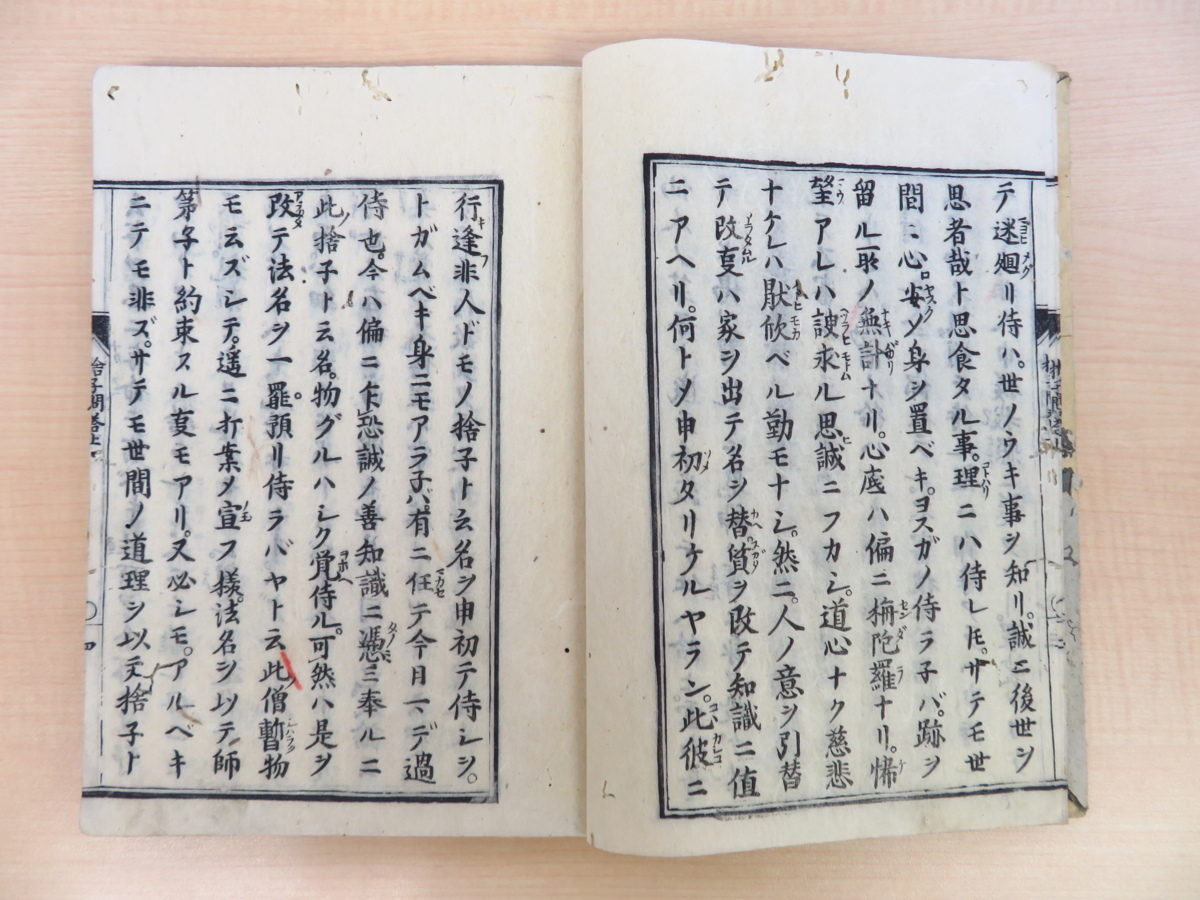 テ迷廻リ侍ハ。世ノウキ事シ知リ。誠ニ後世シ
思者哉ト思食タル事。理ニハ侍レ𪜈。サテモ世
間ニ心安ソ身シ置ベキ。ヨスガノ侍ラ子バ。跡シ
留ル所ノ無計ナリ。心底ハ偏ニ栴陀羅ナリ。悕
望アレハ諛求ル思誠ニフカシ。道心ナク慈悲
ナケレハ厭欣ベル勤モナシ。然ニ人ノ意シ引替
テ改変ハ家ヲ出テ名シ替。質ヲ改テ知識ニ値
ニアヘリ。何トメ申初タリケルヤラン。此彼ニ
行逢非人ドモノ捨子ト云名シ申初テ侍シ。
トガムベキ身ニモアラ子バ。有ニ任テ今月マデ過
侍也。今ハ偏ニ乍恐誠ノ善知識ニ憑ミ奉ルニ
此捨子ト云名。物グルハシク覚侍ル。可然ハ是シ
改テ法名シ一罷預リ侍ラバヤト云。此僧暫物
モ云ズシテ。遥ニ打案メ宣フ様。法名シ以テ師
弟子ト約束スル㕝モアリ。又必シモ。アルベキ
ニテモ非ズ。サテモ世間ノ道理シ以テ捨子ト
捨子問答上
四